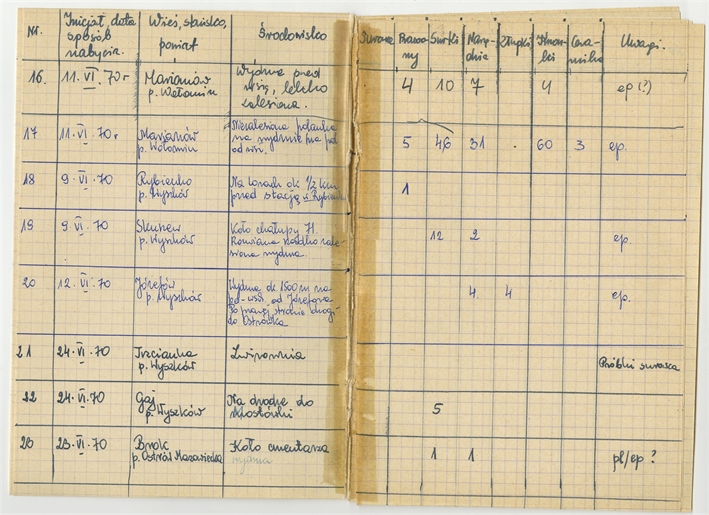 Nr.
Inicjał, data
sposób
nabycia.
Wieś, stańsko,
powiat
Środowisko
Surowe
Rdzeno-
ny
Surki
Narzę-
dzia
Złupki
Cera-
mika
Uwagi.
16.
11. VI. 70 r
Marianów
p. Wołomin
Wydma przed
wsią, lekko
zalesiona.
4
10
7
4
ep (?)
17
11. VI. 70 r
Marjanów
p. Wołomin
Niezalesiona polanka
na wydmie na płd
od wsi.
5
46
31
.
60
3
ep.
18
9. VI. 70
Rybienko
p. Wyszków
Na torach ok 1/2 km
przed stacją w Rybienku
1
19
9. VI. 70
p. Wyszków
Koło chałupy 71.
Rozwiana rzadko zale-
siona wydma.
12
2
ep.
20
12. VI. 70
Józefów
p. Wyszków
Wydma ok. 1500 m na
płd. wsch. od Józefowa
Po prawej stronie drogi
do Ostrówka
4
4
ep.
21
24. VI. 70
Trzcianka
p. Wyszków
Żwirownia
Próbki surowca
22
24. VI. 70
Gaj
p. Wyszków
Na drodze do
5
23
23. VI. 70
Brok
p. Ostrów Mazowiecka
Koło cmentarza
wydma
1
1
pl/ep ?